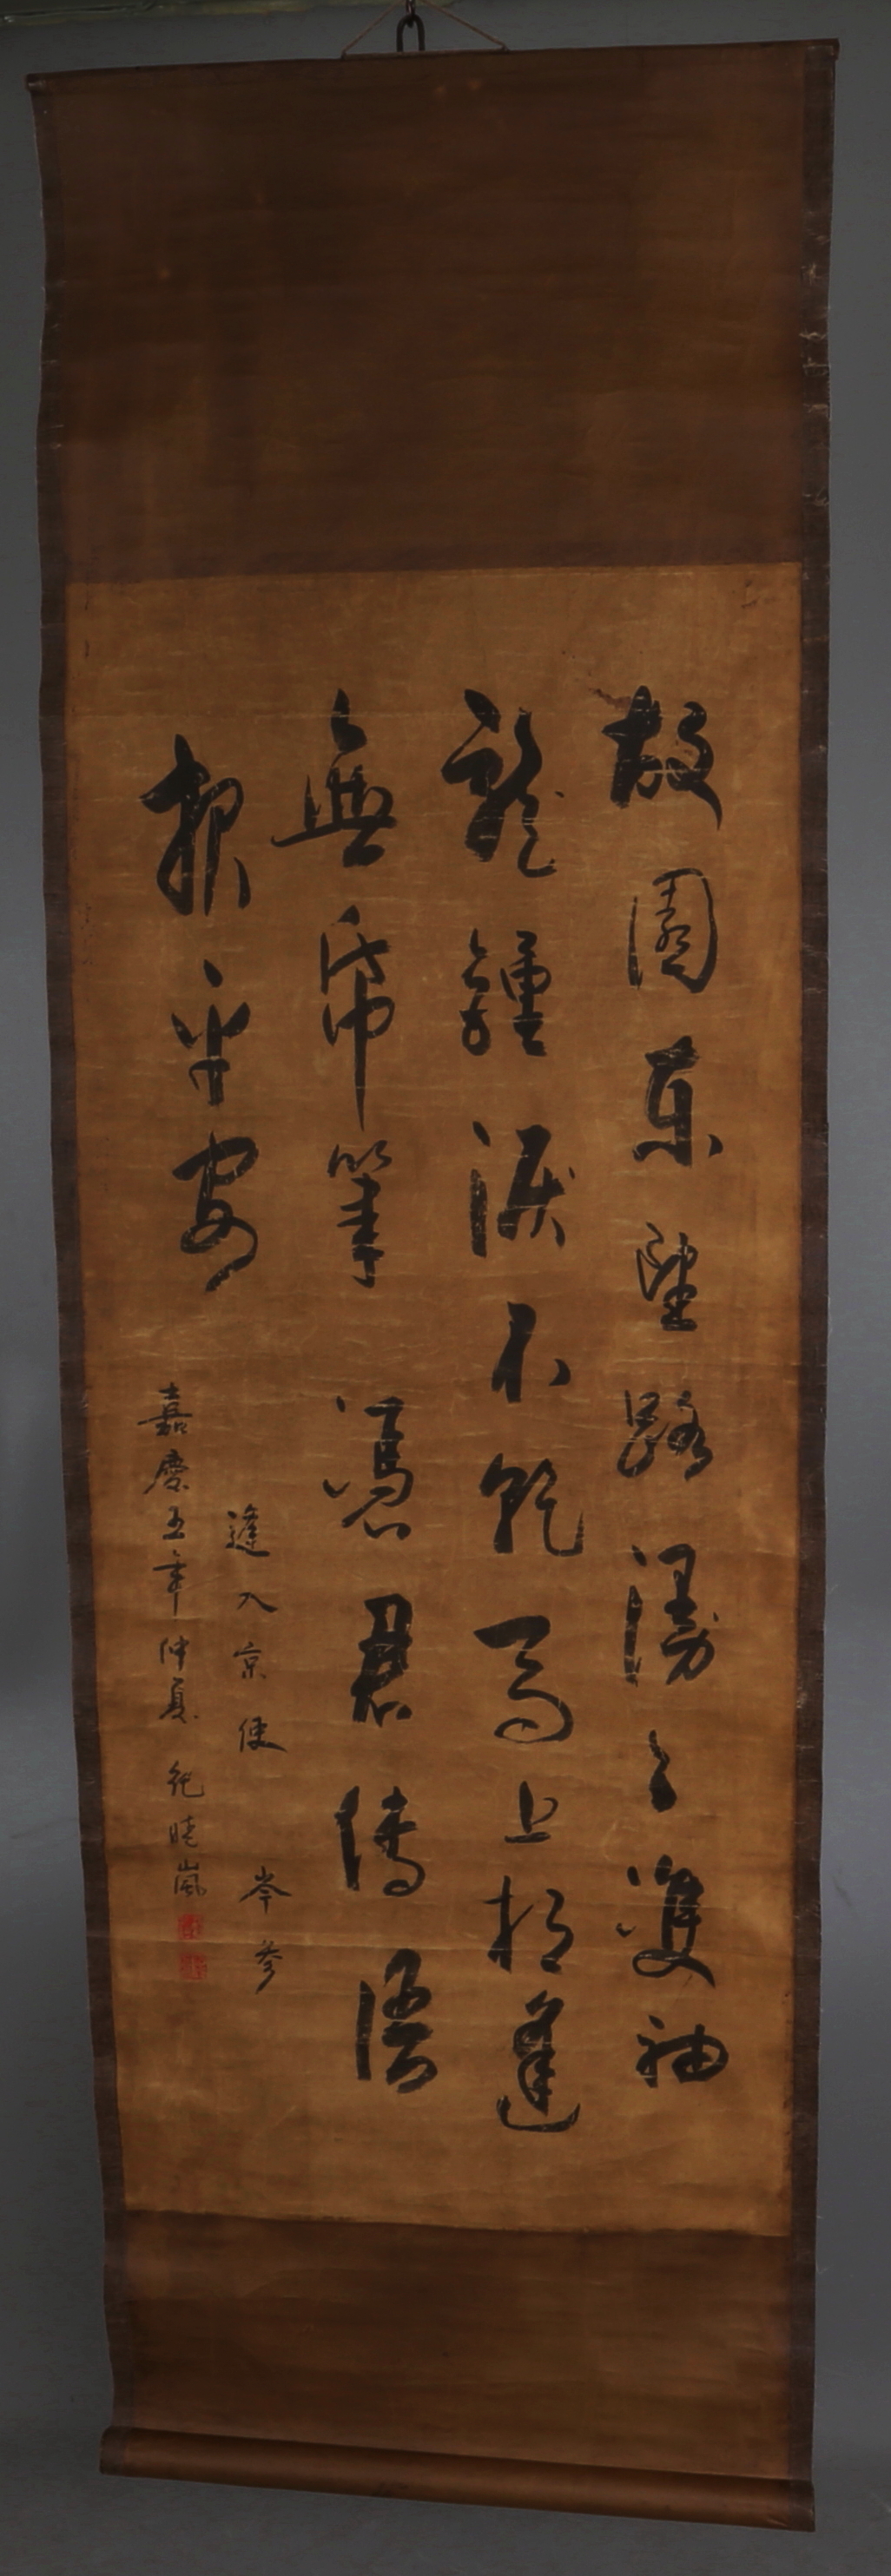 故園東望路漫々雙袖
龍鍾淚不乾馬上相逢
無紙筆憑君傳語
報平安
逢入京使 岑參
嘉慶五年仲夏 紀曉嵐